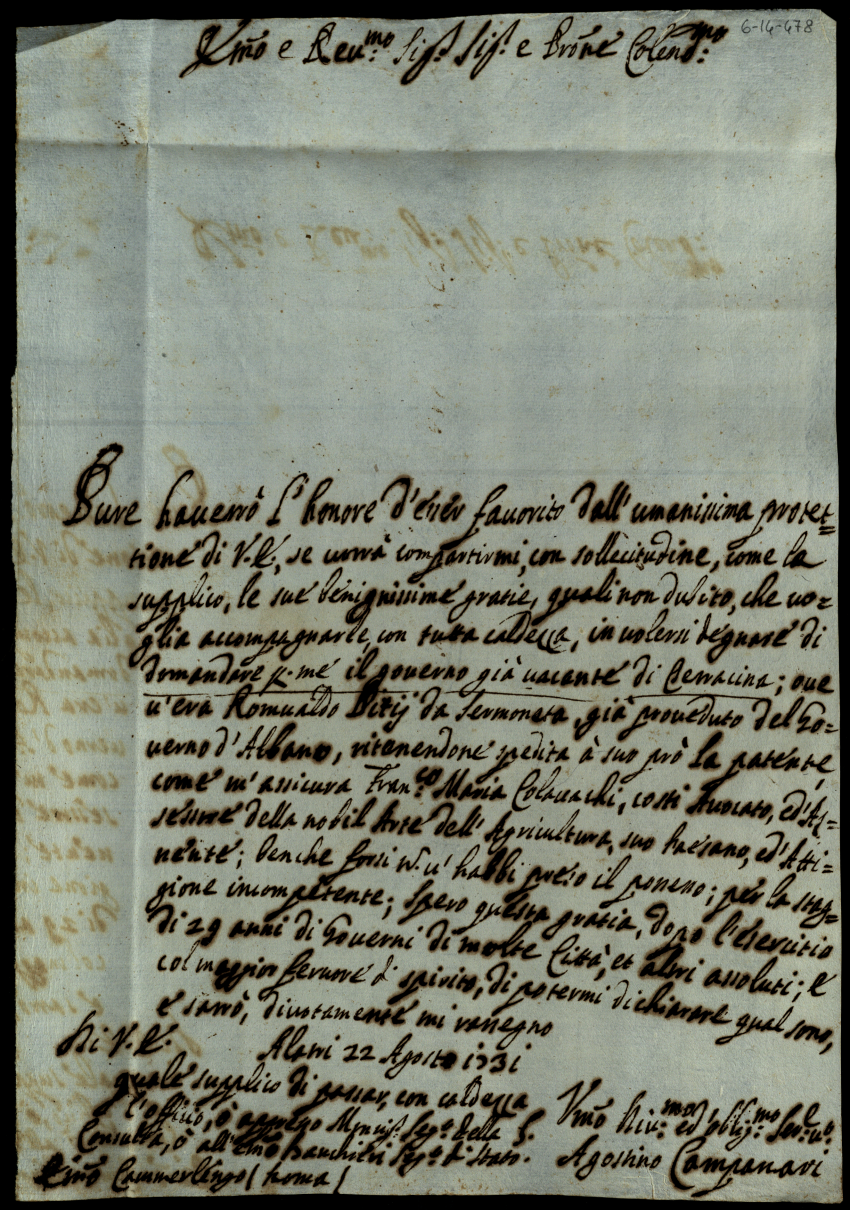 6-14-478
Emo e Reu:mo Sigr Sigr e Prone Colend:mo
Pure hauerrò l'honore d'esser fauorito dall'umanissima protet=
tione di V.E., se uorrà compartirmi, con sollecitudine, come la
supplico, le sue benignissime gratie, quali non dubito, che uo=
glia accompagnarle, con tutta caldezza, in uolersi degnare di
domandare p. me il gouerno già uacante di Terracina; oue
u'era Romualdo da Sermoneta, già proueduto del Go=
uerno d'Albano, ritenendone spedita à suo prò la patente,
come m'assicura Fran:co Maria Colauachi, costì Auocato, ed'As=
sessore della nobil Arte dell'Agricultura, suo Paesano, ed'Atti=
nente; benche forsi n. u'habbi preso il possesso; per la stag=
gione incompetente; spero questa gratia, dopo l'esercitio
di 29 anni di Gouerni di molte Città, et altri assoluti; e
col maggior feruore di spirito, di potermi dichiarare qual sono,
e sarrò, diuotamente mi rassegno
Di V.E. Alatri 22 Agosto 1731
quale supplico di passar, con caldezza
l'officio, ò appresso Monsig.r Seg.o della S.
Consulta, ò all'Emo Banchieri Seg.o di Stato.
Emo Cammerlengo (Roma)
Vmo Diu:mo ed obblig:mo Ser:e u:o
Agostino Campanari